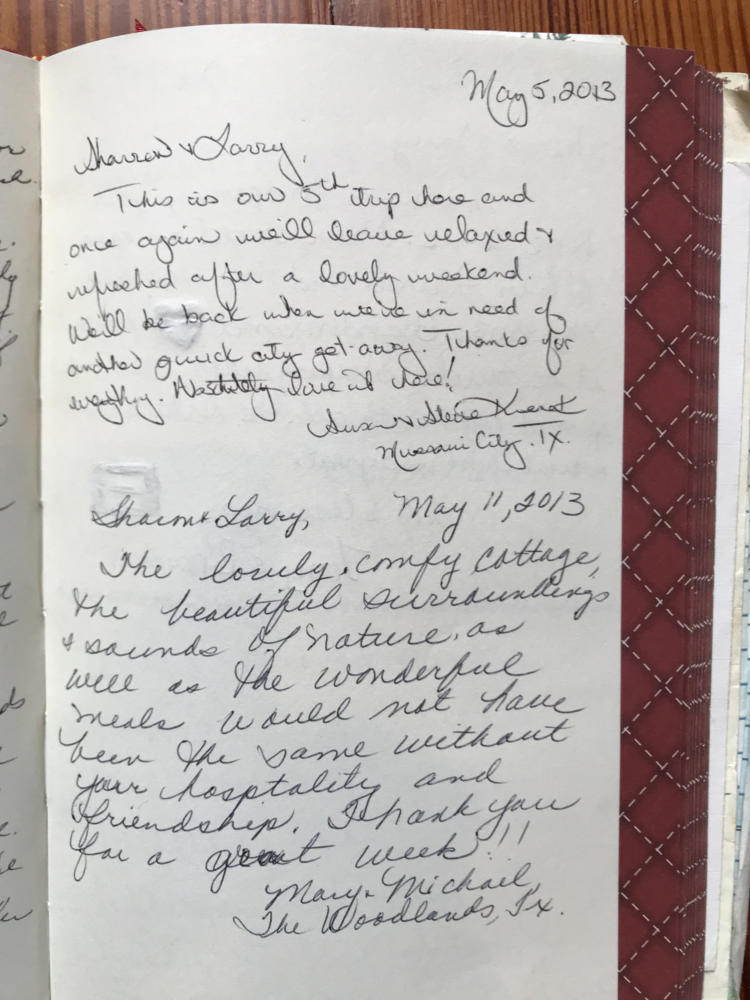 May 5, 2013
Sharron & Larry,
This is our 5th trip here and
once again we'll leave relaxed &
refreshed after a lovely weekend.
We'll be back when we're in need of
another quick city get-away. Thanks for
everything. Absolutely love it here!
Susan & Steve
Missouri City, TX.
Sharon & Larry, May 11, 2013
The lovely, comfy cottage,
the beautiful surroundings
& sounds of nature, as
well as the wonderful
meals would not have
been the same without
your hosptality and
friendship. Thank you
for a great week!!!
Mary & Michael
The Woodlands, Tx.